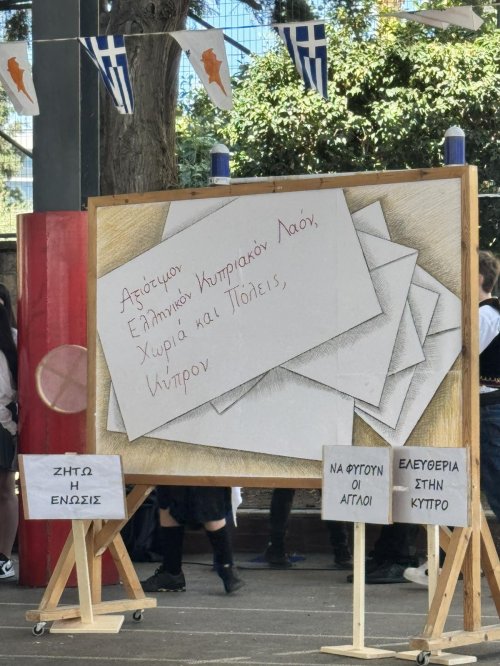 Αξιότιμον
Ελληνικόν Κυπριακόν Λαόν,
Χωριά και Πόλεις,
Κύπρον
ΖΗΤΩ
Η
ΕΝΩΣΙΣ
ΝΑ ΦΥΓΟΥΝ
ΟΙ
ΑΓΓΛΟΙ
ΕΛΕΥΘΕΡΙΑ
ΣΤΗΝ
ΚΥΠΡΟ